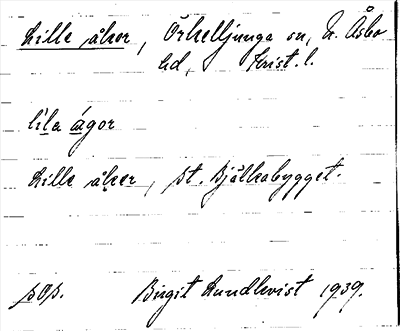 Lille åker, Örkelljunga sn, N. Åsbo
hd, Krist. l.
lìla ágor
Lille åker, st. Bjälkabygget.
sOp. Birgit Lundkvist 1939.